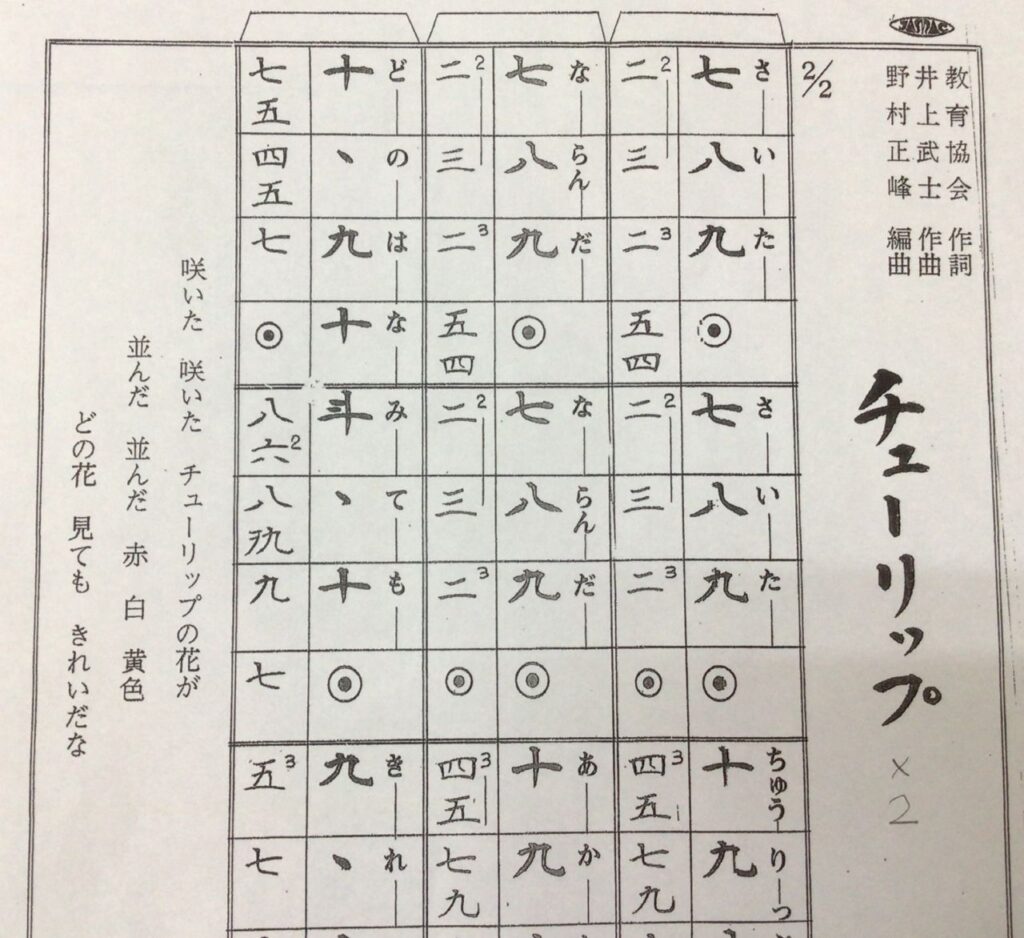 JASRAC
教育協会 作詞
井上武士 作曲
野村正峰 編曲
チューリップ ×2
2/2
さ い た さ い た ちゅう りーっ
七 八 九 ⊙ 七 八 九 ⊙ 十 九
二2 三 二3 五 四 二2 三 二3 ⊙ 四3 五 七 九
な らん だ な らん だ あ か
七 八 九 ⊙ 七 八 九 ⊙ 十 九
二2 三 二3 五 四 二2 三 二3 ⊙ 四3 五 七 九
ど の は な み て も き れ
十 ヽ 九 十 斗 ヽ 十 ⊙ 九 ヽ
七 五 四 五 七 ⊙ 八 六2 八 九 七 五3 七
咲いた 咲いた チューリップの花が
並んだ 並んだ 赤 白 黄色
どの花 見ても きれいだな